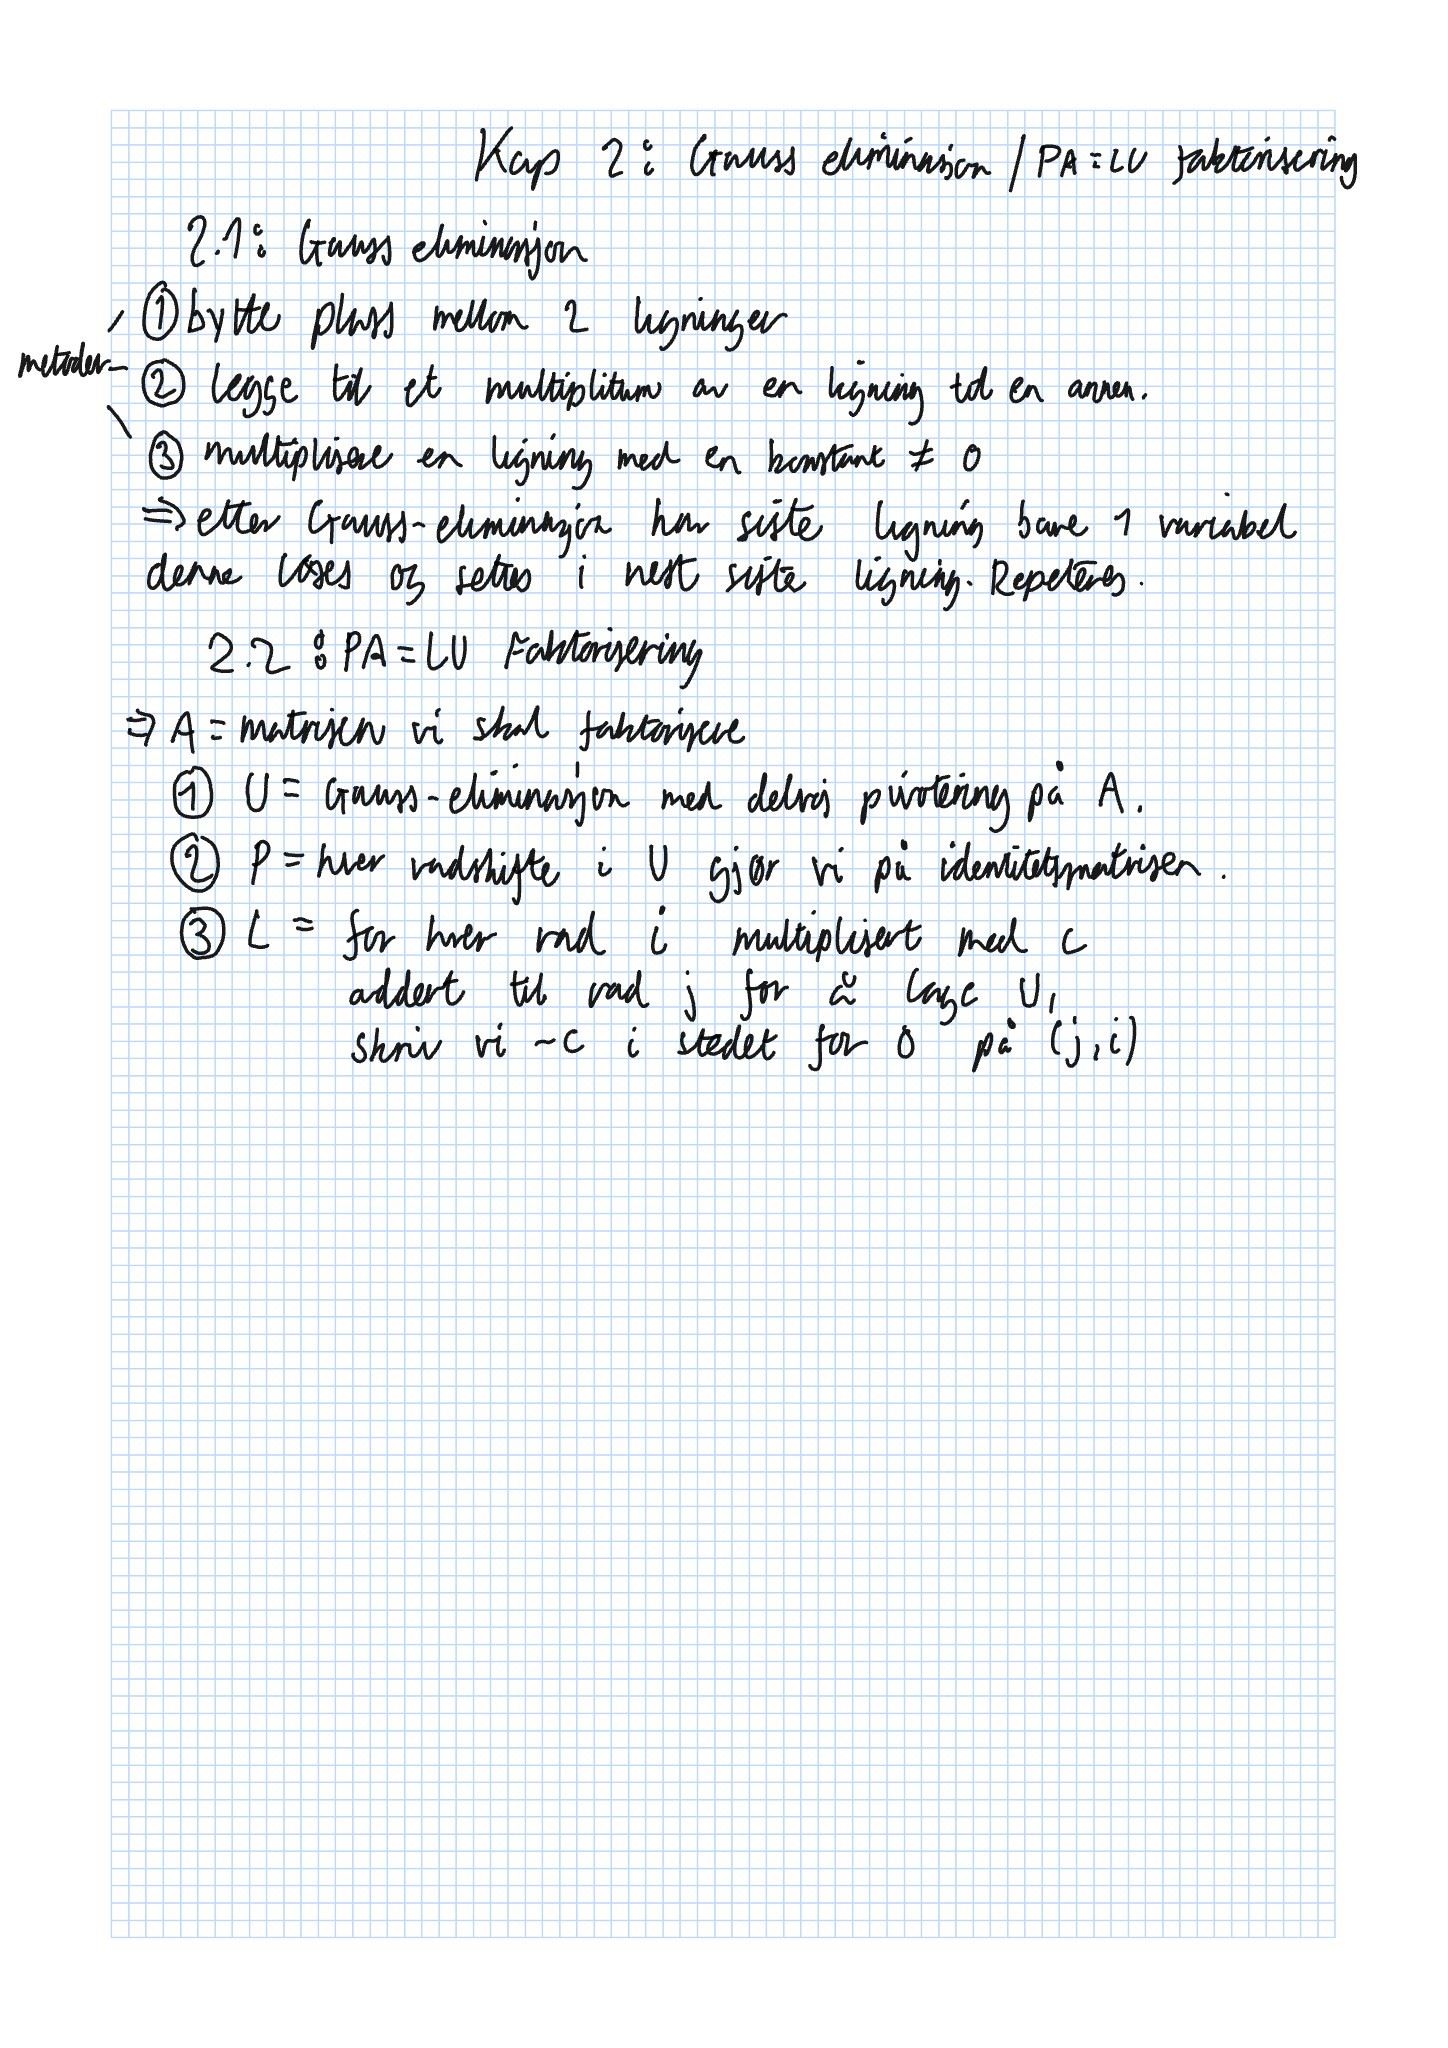 Kap 2: Gauss eliminasjon / PA=LU faktorisering
2.1: Gauss eliminasjon
① bytte plass mellom 2 ligninger
metoder
② legge til et multiplitum av en ligning til en annen.
③ multiplisere en ligning med en konstant ≠ 0
⇒ etter Gauss-eliminasjon har siste ligning bare 1 variabel
denne løses og settes i nest siste ligning. Repeteres.
2.2: PA=LU Faktorisering
⇒ A = matrisen vi skal faktorisere
① U = Gauss-eliminasjon med delvis pivotering på A.
② P = hver radskifte i U gjør vi på identitetsmatrisen.
③ L = for hver rad i multiplisert med c
addert til rad j for å lage U,
skriv vi -c i stedet for 0 på (j,i)